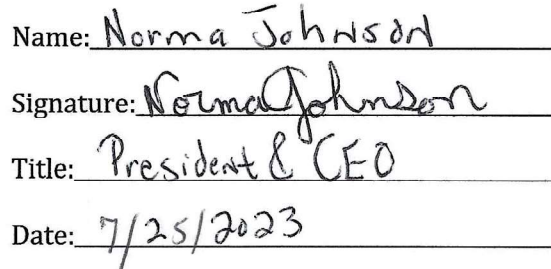 Name: Norma Johnson
Signature: Norma Johnson
Title: President & CEO
Date: 7/25/2023